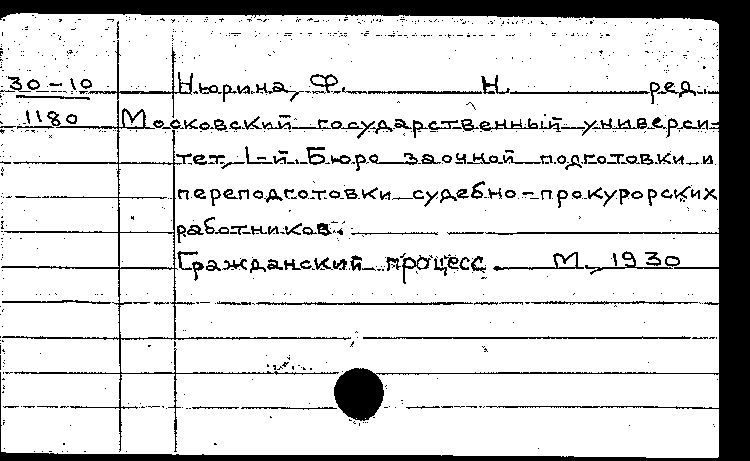 30-10 Нюрина, Ф. Н. ред.
1180 Московский государственный универси-
тет, 1-й. Бюро заочной подготовки и
переподготовки судебно-прокурорских
работников.
Гражданский процесс. М., 1930